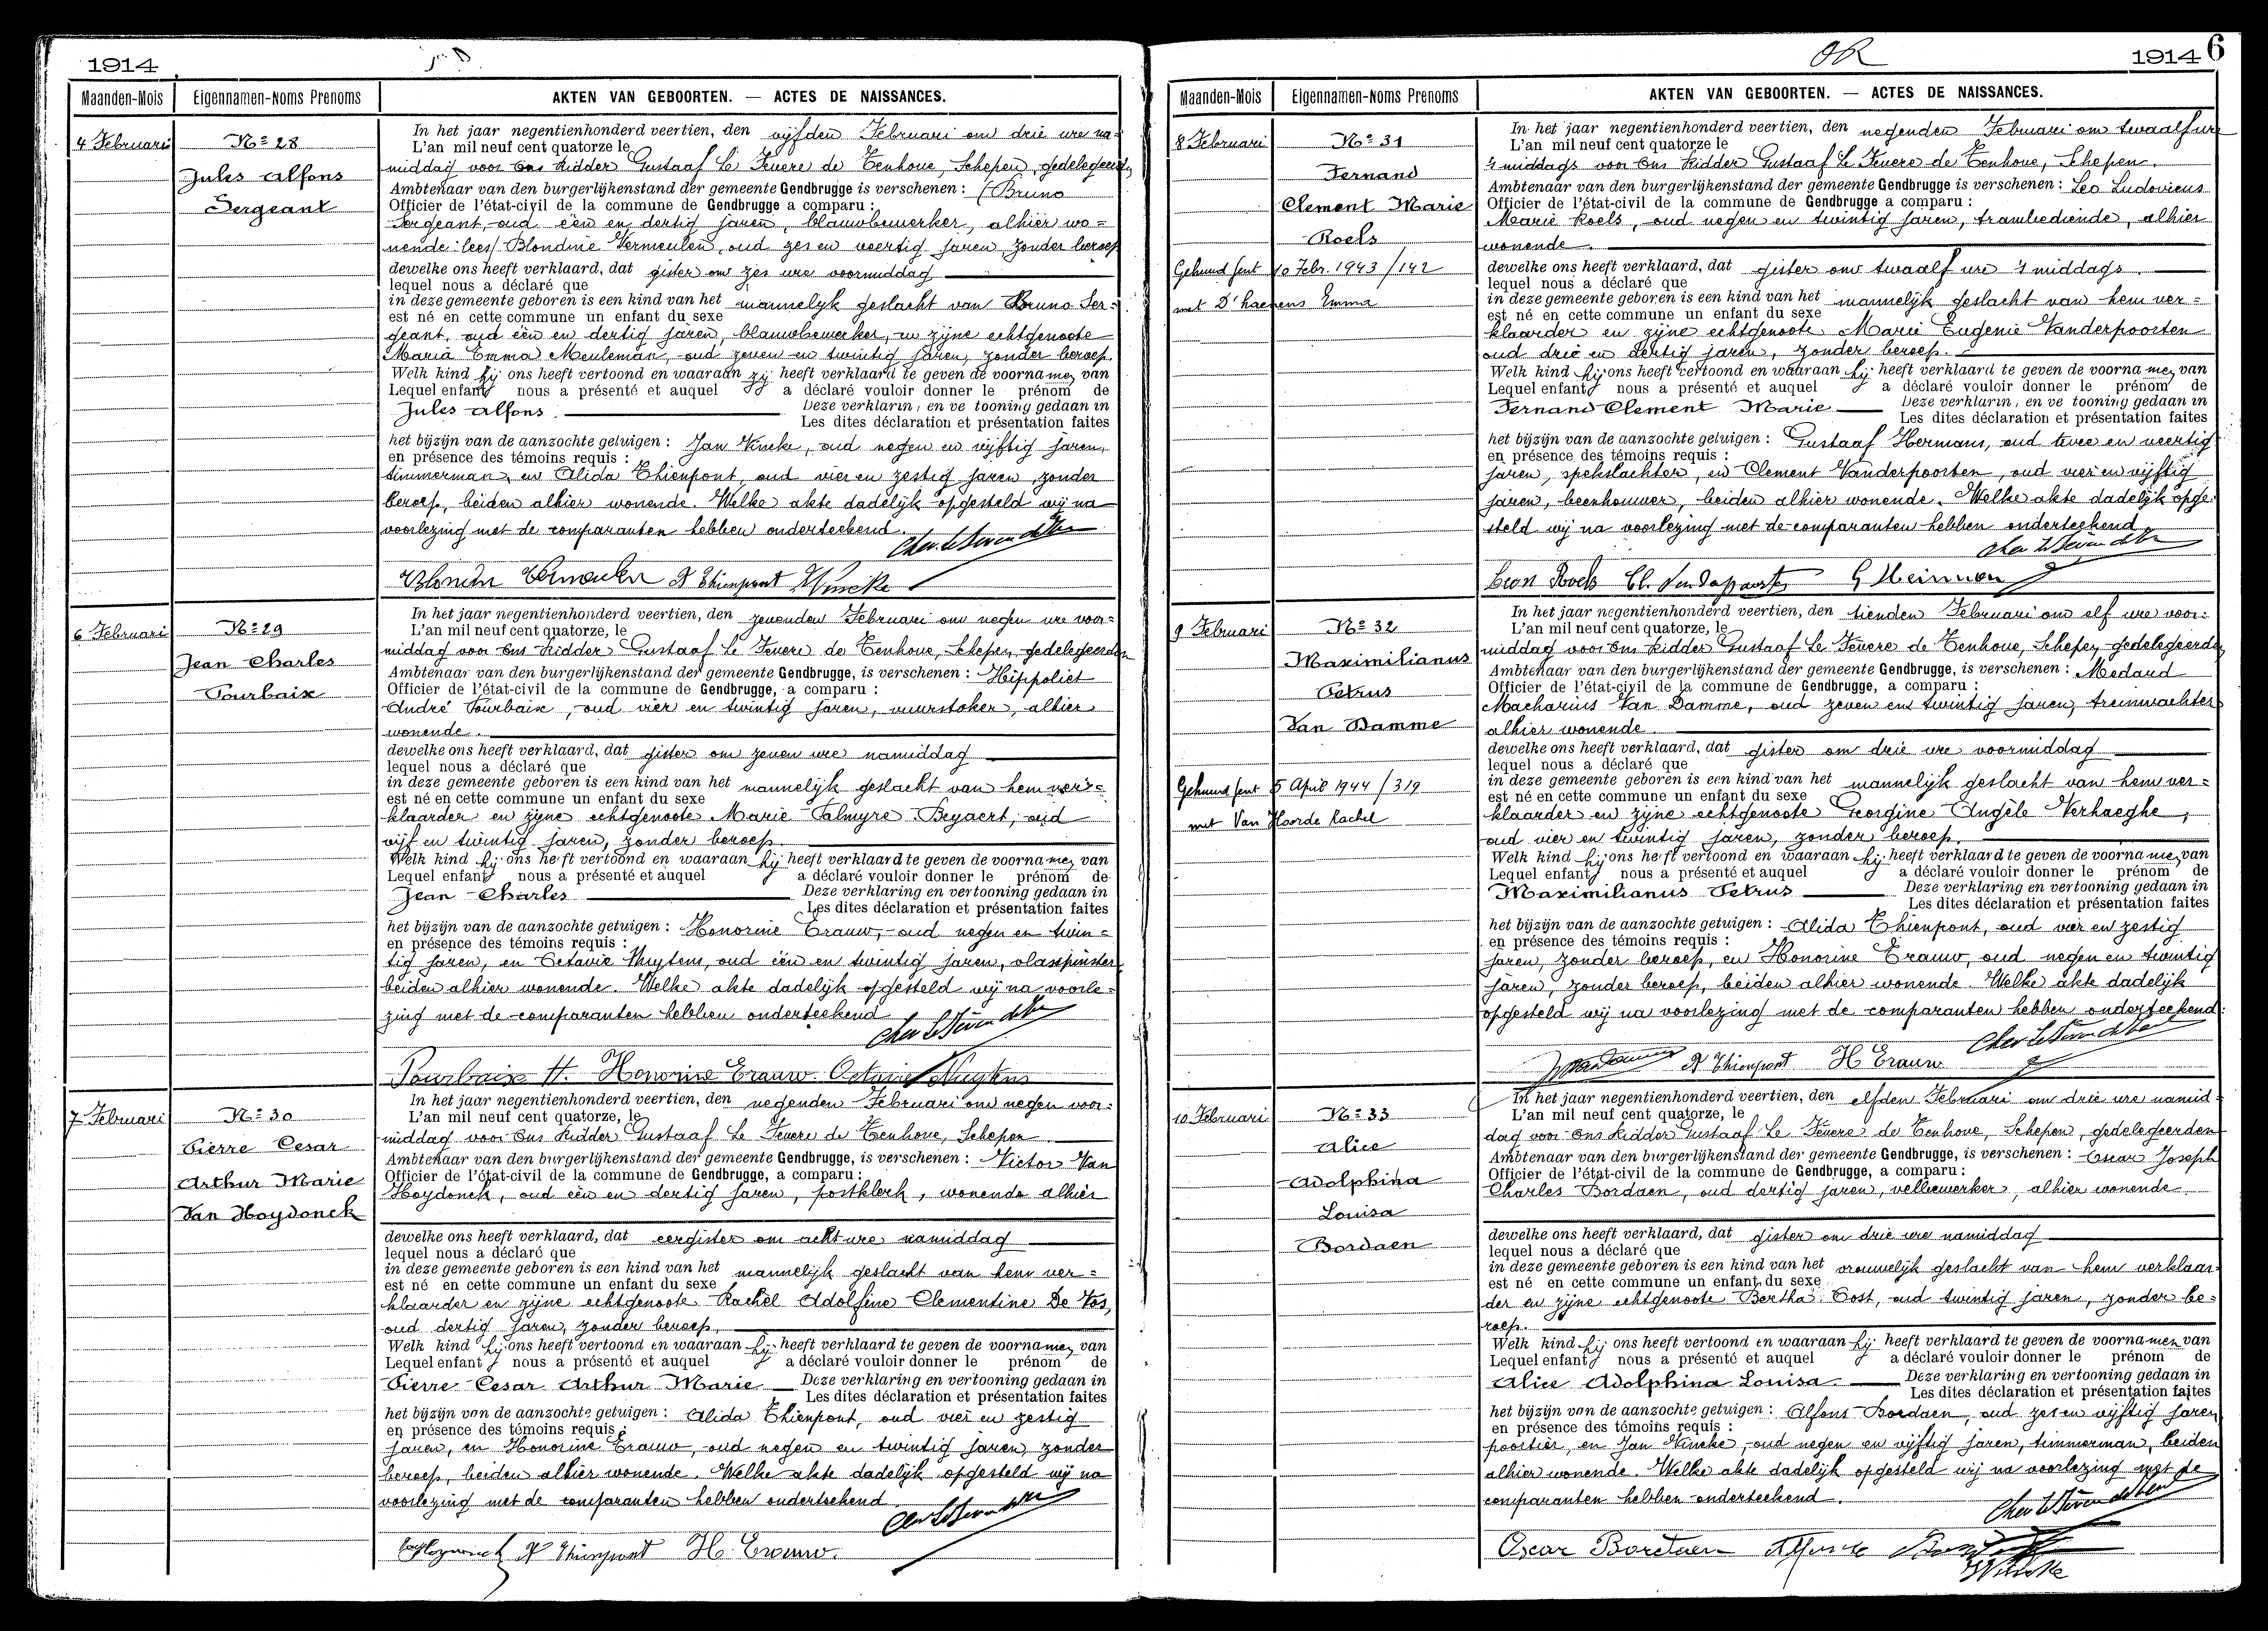 1914
Maanden-Mois
Eigennamen-Noms Prenoms
AKTEN VAN GEBOORTEN. — ACTES DE NAISSANCES.
4 Februari
No 28
Jules Alfons
Sergeant
In het jaar negentienhonderd veertien, den vijfden Februari om drie ure na=
L'an mil neuf cent quatorze le
middag voor Ons Ridder Gustaaf Le Fevere de Tenhove, Schepen, gedelegeerden
Ambtenaar van den burgerlijkenstand der gemeente Gendbrugge is verschenen : (Bruno
Officier de l'état-civil de la commune de Gendbrugge a comparu :
Sergeant, oud één en dertig jaren, blauwbewerker, alhier wo=
nende: lees) Blondine Vermeulen, oud zes en veertig jaren, zonder beroep
dewelke ons heeft verklaard, dat gister om zes ure voormiddag
lequel nous a déclaré que
in deze gemeente geboren is een kind van het mannelijk geslacht van Bruno Ser=
est né en cette commune un enfant du sexe
geant, oud één en dertig jaren, blauwbewerker, en zijne echtgenoote
Maria Emma Meuleman, oud zeven en twintig jaren, zonder beroep.
Welk kind zij ons heeft vertoond en waaraan zij heeft verklaard te geven de voornamen van
Lequel enfant nous a présenté et auquel a déclaré vouloir donner le prénom de
Jules Alfons. Deze verklarin, en ve tooning gedaan in
Les dites déclaration et présentation faites
het bijzijn van de aanzochte getuigen : Jan Vincke, oud negen en vijftig jaren,
en présence des témoins requis :
timmerman, en Alida Thienpont, oud vier en zestig jaren, zonder
beroep, beiden alhier wonende. Welke akte dadelijk opgesteld wij na
voorlezing met de comparanten hebben onderteekend.
A Thienpont
6 Februari
No 29
Jean Charles
Pourbaix
In het jaar negentienhonderd veertien, den zevenden Februari om negen ure voor=
L'an mil neuf cent quatorze, le
middag voor Ons Ridder Gustaaf Le Fevere de Tenhove, Schepen, gedelegeerden
Ambtenaar van den burgerlijkenstand der gemeente Gendbrugge, is verschenen : Hippoliet
Officier de l'état-civil de la commune de Gendbrugge, a comparu :
André Pourbaix, oud vier en twintig jaren, vuurstoker, alhier
wonende.
dewelke ons heeft verklaard, dat gister om zeven ure namiddag
lequel nous a déclaré que
in deze gemeente geboren is een kind van het mannelijk geslacht van hem ver=
est né en cette commune un enfant du sexe
klaarder en zijne echtgenoote Marie Palmyre Beyaert, oud
vijf en twintig jaren, zonder beroep.
Welk kind hij ons heeft vertoond en waaraan hij heeft verklaard te geven de voornamen van
Lequel enfant nous a présenté et auquel a déclaré vouloir donner le prénom de
Jean Charles Deze verklaring en vertooning gedaan in
Les dites déclaration et présentation faites
het bijzijn van de aanzochte getuigen : Honorine Erauw, oud negen en twin=
en présence des témoins requis :
tig jaren, en Octavie Nuytens, oud één en twintig jaren, vlasspinster,
beiden alhier wonende. Welke akte dadelijk opgesteld wij na voorle=
zing met de comparanten hebben onderteekend
Pourbaix H. Honorine Erauw. Octavie Nuytens
7 Februari
No 30
Pierre Cesar
Arthur Marie
Van Hoydonck
In het jaar negentienhonderd veertien, den negenden Februari om negen voor=
L'an mil neuf cent quatorze, le
middag voor Ons Ridder Gustaaf Le Fevere de Tenhove, Schepen
Ambtenaar van den burgerlijkenstand der gemeente Gendbrugge, is verschenen : Victor Van
Officier de l'état-civil de la commune de Gendbrugge, a comparu :
Hoydonck, oud één en dertig jaren, postklerk, wonende alhier
dewelke ons heeft verklaard, dat eergister om acht ure namiddag
lequel nous a déclaré que
in deze gemeente geboren is een kind van het mannelijk geslacht van hem ver=
est né en cette commune un enfant du sexe
klaarder en zijne echtgenoote Rachel Adolfine Clementine De Vos,
oud dertig jaren, zonder beroep.
Welk kind hij ons heeft vertoond en waaraan hij heeft verklaard te geven de voornamen van
Lequel enfant nous a présenté et auquel a déclaré vouloir donner le prénom de
Pierre Cesar Arthur Marie Deze verklaring en vertooning gedaan in
Les dites déclaration et présentation faites
het bijzijn van de aanzochte getuigen : Alida Thienpont, oud vier en zestig
en présence des témoins requis :
jaren, en Honorine Erauw, oud negen en twintig jaren, zonder
beroep, beiden alhier wonende. Welke akte dadelijk opgesteld wij na
voorlezing met de comparanten hebben onderteekend.
A Thienpont H. Erauw.
OR
1914 6
Maanden-Mois
Eigennamen-Noms Prenoms
AKTEN VAN GEBOORTEN. — ACTES DE NAISSANCES.
8 Februari
No 31
Fernand
Clement Marie
Roels
Gehuwd Gent 10 Febr. 1943 / 142
met D'haenens Emma
In het jaar negentienhonderd veertien, den negenden Februari om twaalf ure
L'an mil neuf cent quatorze le
's middags voor Ons Ridder Gustaaf Le Fevere de Tenhove, Schepen.
Ambtenaar van den burgerlijkenstand der gemeente Gendbrugge is verschenen : Leo Ludovicus
Officier de l'état-civil de la commune de Gendbrugge a comparu :
Marie Roels, oud negen en twintig jaren, trambediende, alhier
wonende.
dewelke ons heeft verklaard, dat gister om twaalf ure 's middags.
lequel nous a déclaré que
in deze gemeente geboren is een kind van het mannelijk geslacht van hem ver=
est né en cette commune un enfant du sexe
klaarder en zijne echtgenoote Marie Eugenie Vanderpoorten
oud drie en dertig jaren, zonder beroep.
Welk kind hij ons heeft vertoond en waaraan hij heeft verklaard te geven de voornamen van
Lequel enfant nous a présenté et auquel a déclaré vouloir donner le prénom de
Fernand Clement Marie Deze verklarin, en ve tooning gedaan in
Les dites déclaration et présentation faites
het bijzijn van de aanzochte getuigen : Gustaaf Hermans, oud twee en veertig
en présence des témoins requis :
jaren, spekslachter, en Clement Vanderpoorten, oud vier en vijftig
jaren, beenhouwer, beiden alhier wonende. Welke akte dadelijk opge=
steld wij na voorlezing met de comparanten hebben onderteekend.
Leon Roels
9 Februari
No 32
Maximilianus
Petrus
Van Damme
Gehuwd Gent 5 April 1944 / 319
met Van Hoorde Rachel
In het jaar negentienhonderd veertien, den tienden Februari om elf ure voor=
L'an mil neuf cent quatorze, le
middag voor Ons Ridder Gustaaf Le Fevere de Tenhove, Schepen gedelegeerden
Ambtenaar van den burgerlijkenstand der gemeente Gendbrugge, is verschenen : Medard
Officier de l'état-civil de la commune de Gendbrugge, a comparu :
Macharius Van Damme, oud zeven en twintig jaren, treinwachter
alhier wonende.
dewelke ons heeft verklaard, dat gister om drie ure voormiddag
lequel nous a déclaré que
in deze gemeente geboren is een kind van het mannelijk geslacht van hem ver=
est né en cette commune un enfant du sexe
klaarder en zijne echtgenoote Georgine Angèle Verhaeghe,
oud vier en twintig jaren, zonder beroep.
Welk kind hij ons heeft vertoond en waaraan hij heeft verklaard te geven de voornamen van
Lequel enfant nous a présenté et auquel a déclaré vouloir donner le prénom de
Maximilianus Petrus Deze verklaring en vertooning gedaan in
Les dites déclaration et présentation faites
het bijzijn van de aanzochte getuigen : Alida Thienpont, oud vier en zestig
en présence des témoins requis :
jaren, zonder beroep, en Honorine Erauw, oud negen en twintig
jaren, zonder beroep, beiden alhier wonende. Welke akte dadelijk
opgesteld wij na voorlezing met de comparanten hebben onderteekend.
A Thienpont H. Erauw
10 Februari
No 33
Alice
Adolphina
Louisa
Bordaen
In het jaar negentienhonderd veertien, den elfden Februari om drie ure namid=
L'an mil neuf cent quatorze, le
dag voor Ons Ridder Gustaaf Le Fevere de Tenhove, Schepen, gedelegeerden
Ambtenaar van den burgerlijkenstand der gemeente Gendbrugge, is verschenen : Oscar Joseph
Officier de l'état-civil de la commune de Gendbrugge, a comparu :
Charles Bordaen, oud dertig jaren, vellbewerker, alhier wonende
dewelke ons heeft verklaard, dat gister om drie ure namiddag
lequel nous a déclaré que
in deze gemeente geboren is een kind van het vrouwelijk geslacht van hem verklaar=
est né en cette commune un enfant du sexe
der en zijne echtgenoote Bertha Oost, oud twintig jaren, zonder be=
roep.
Welk kind hij ons heeft vertoond en waaraan hij heeft verklaard te geven de voornamen van
Lequel enfant nous a présenté et auquel a déclaré vouloir donner le prénom de
Alice Adolphina Louisa Deze verklaring en vertooning gedaan in
Les dites déclaration et présentation faites
het bijzijn van de aanzochte getuigen : Alfons Bordaen, oud zes en vijftig jaren
en présence des témoins requis :
poortier, en Jan Vincke, oud negen en vijftig jaren, timmerman, beiden
alhier wonende. Welke akte dadelijk opgesteld wij na voorlezing met de
comparanten hebben onderteekend.
Oscar Bordaen